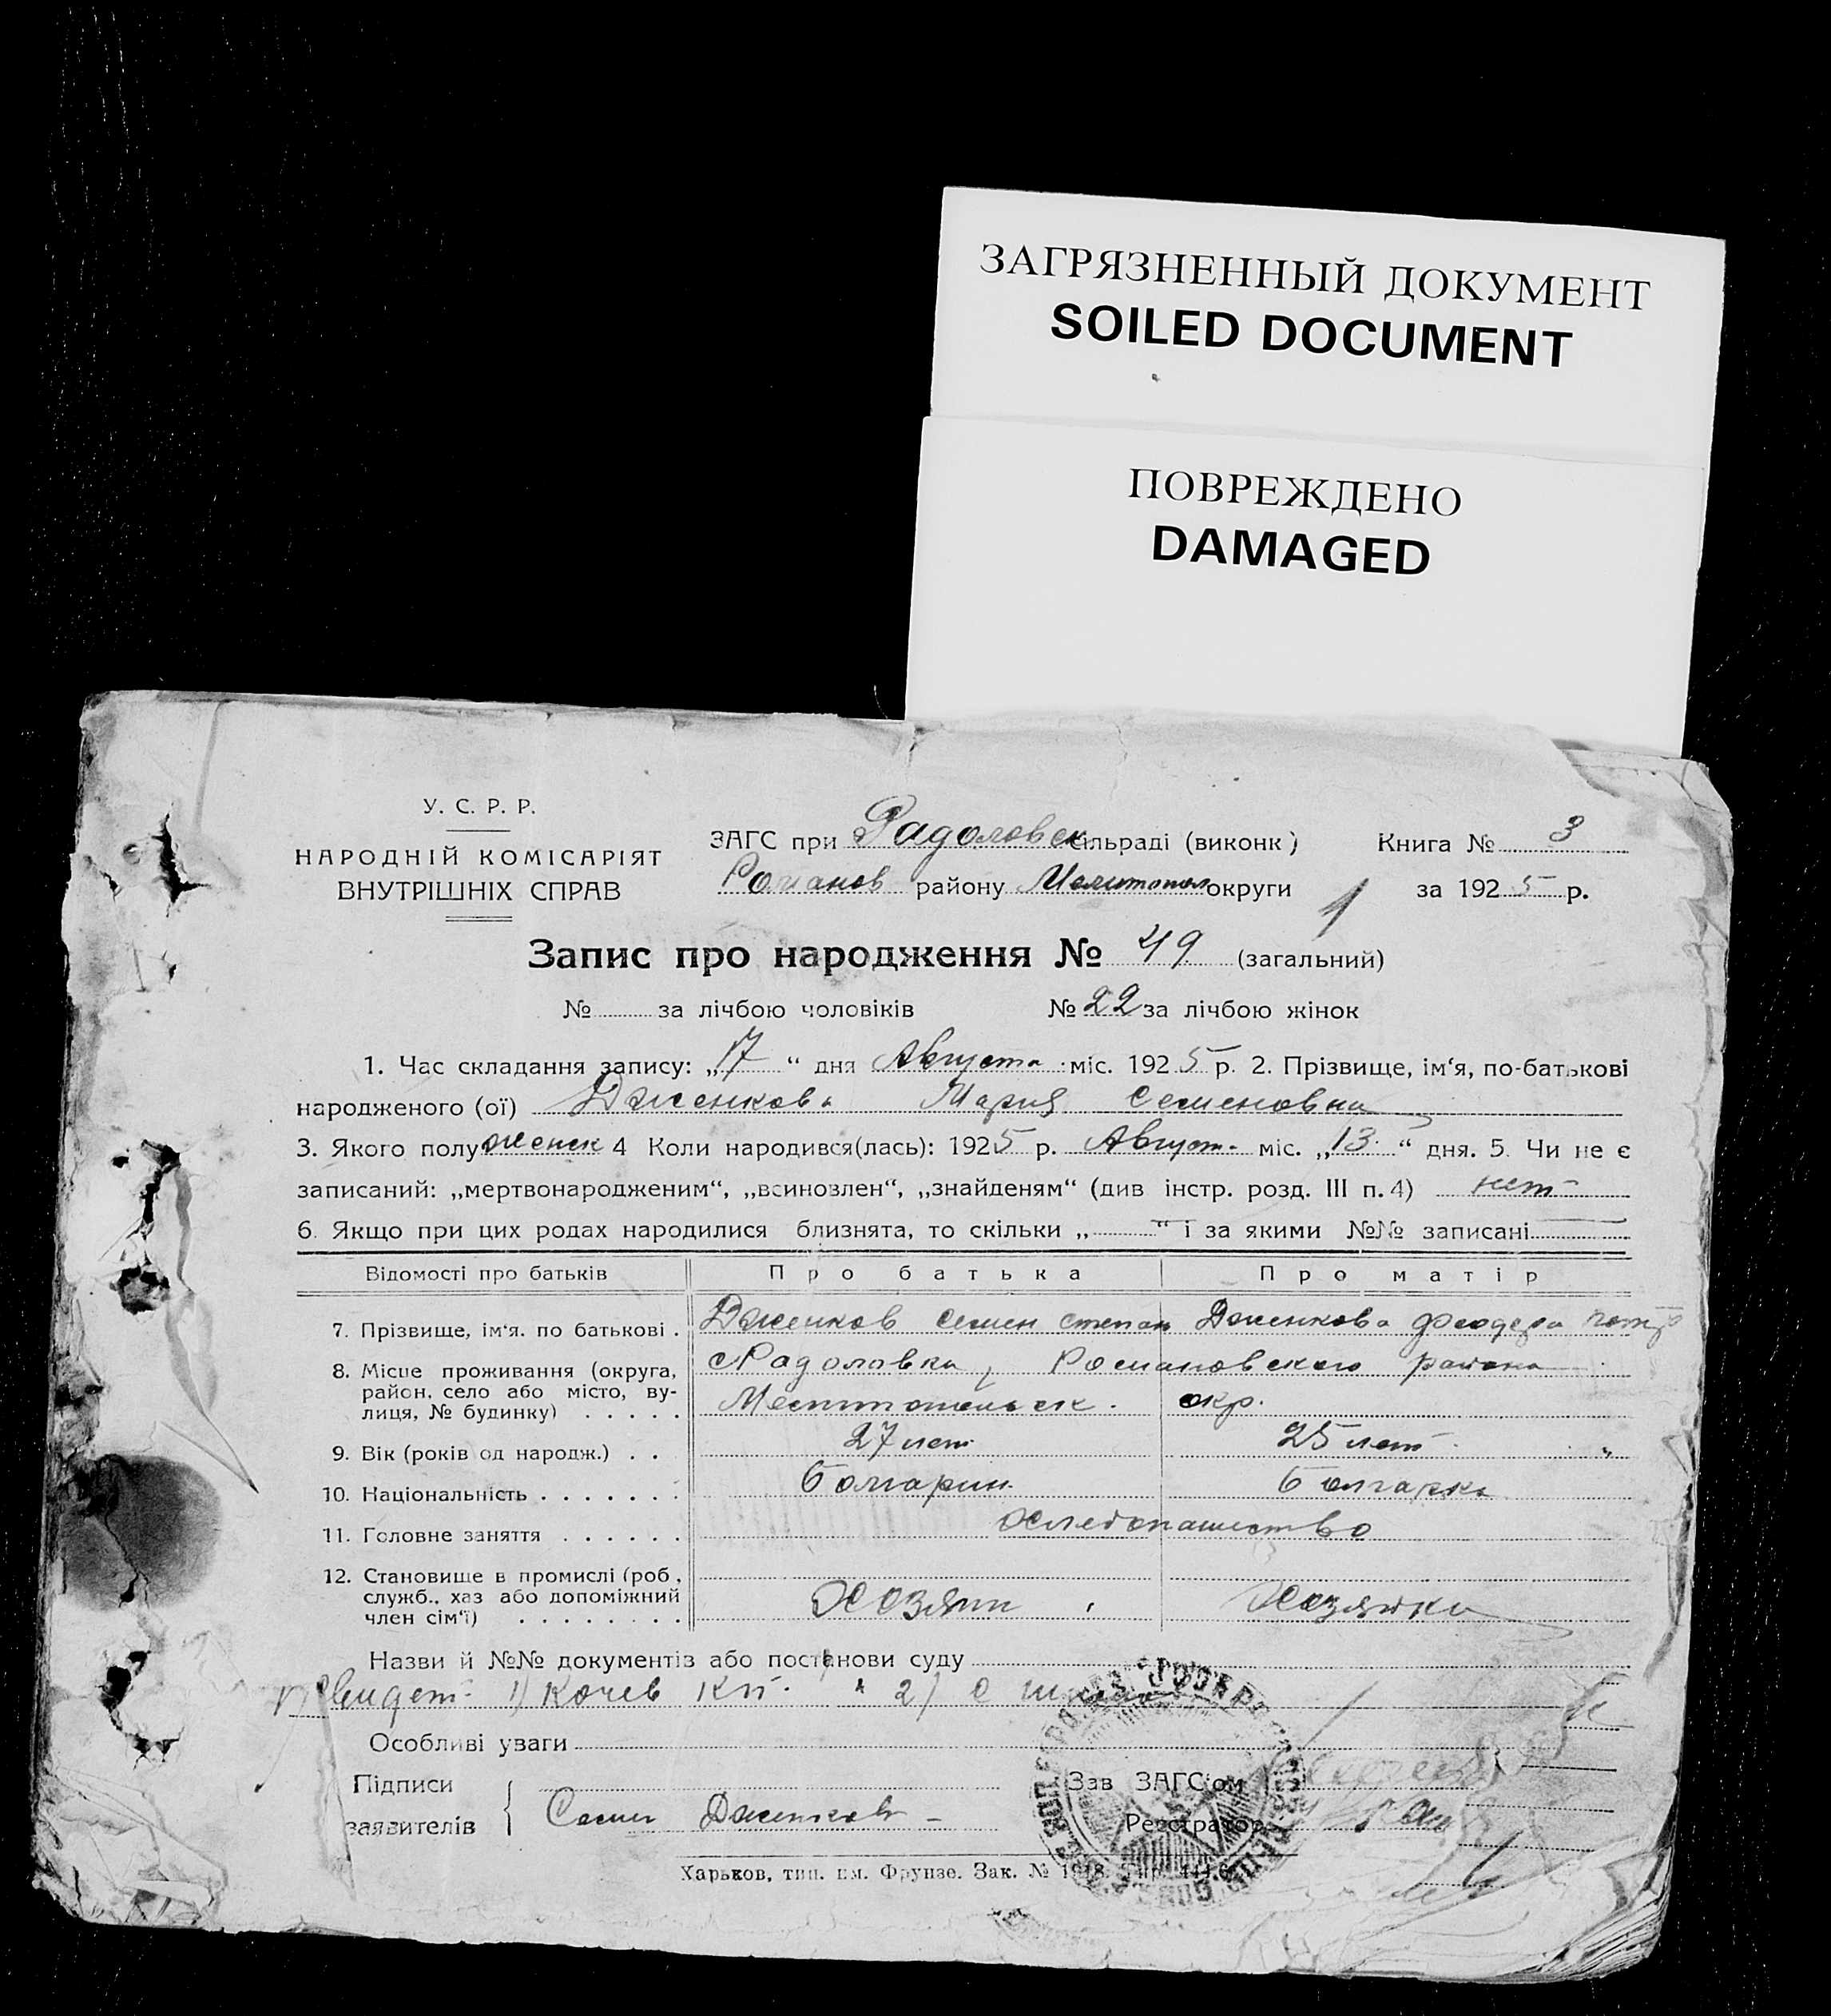 ЗАГРЯЗНЕННЫЙ ДОКУМЕНТ
SOILED DOCUMENT
ПОВРЕЖДЕНО
DAMAGED
У. С. Р. Р.
НАРОДНІЙ КОМІСАРІЯТ
ВНУТРІШНІХ СПРАВ
ЗАГС при Радоловск сільраді (виконк) Книга № 3
Романов району Мелитопол округи за 1925 р.
Запис про народження № 49 (загальний)
№ за лічбою чоловіків № 22 за лічбою жінок
1. Час складання запису: „17“ дня Августа міс. 1925 р. 2. Прізвище, ім‘я, по-батькові
народженого (ої) Дженкова Мария Семеновна
3. Якого полу женск 4 Коли народився(лась): 1925 р. Август. міс. „13.“ дня. 5. Чи не є
записаний: „мертвонародженим“, „всиновлен“, „знайденям“ (див інстр. розд. III п. 4) нет
6. Якщо при цих родах народилися близнята, то скільки „ “ і за якими №№ записані
Відомості про батьків Про батька Про матір
7. Прізвище, ім‘я. по батькові . Дженков Семен Степан Дженкова Феодора Петр
8. Місце проживання (округа, район, село або місто, вулиця, № будинку) с Радоловка, Романовского района
окр.
9. Вік (років од народж.) . . 27 лет 25 лет
10. Національність . . . . . . . Болгарин. Болгарка
11. Головне заняття . . . . . . Хлебопашество
12. Становище в промислі (роб, служб., хаз або допоміжний член сім‘ї) . . . . . . . Хозяин Хозяйка
Назви й №№ документів або постанови суду
1) Кочев 2)
Особливі уваги
Підписи
заявителів Семен Дженков
Зав ЗАГС‘ом
Реєстратор
Харьков, тип. им. Фрунзе. Зак. №